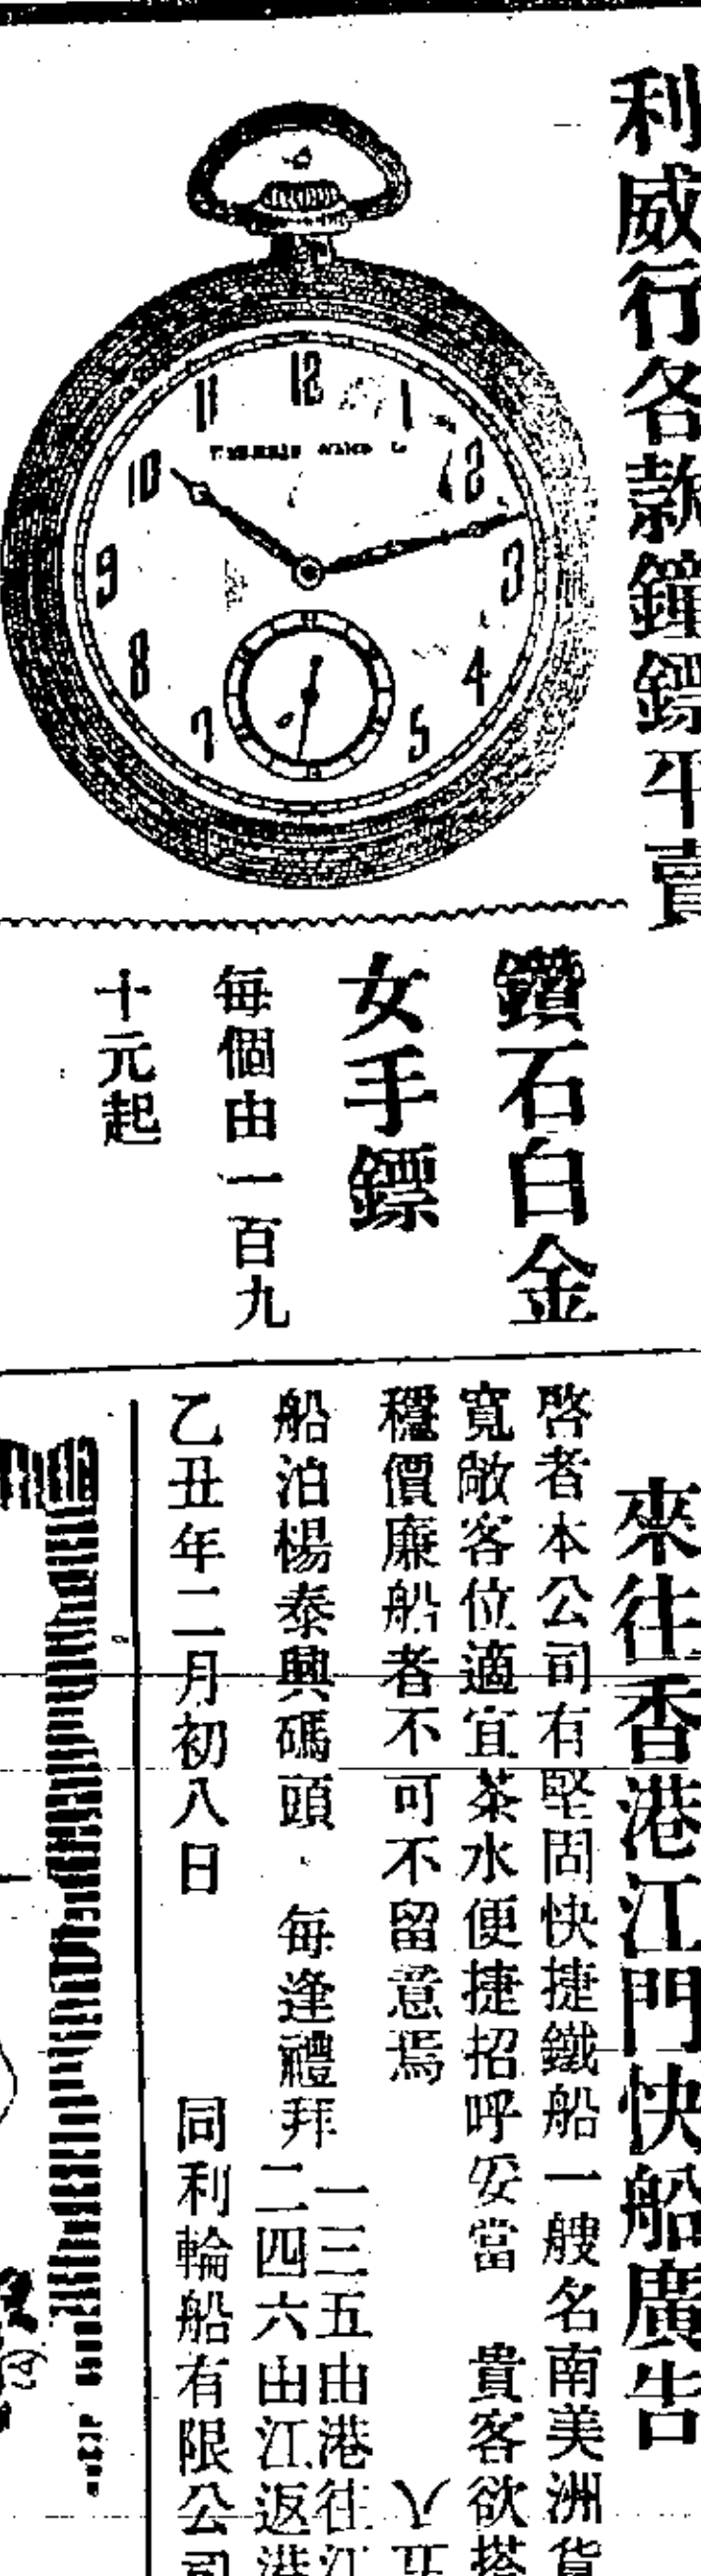 利威行各款鐘鏢平賣
12
1
2
3
4
5
7
8
9
10
11
鑽石白金
女手鏢
每個由一百九
十元起
來往香港江門快船廣告
啓者本公司有堅固快捷鐵船一艘名南美洲貨
寬敞客位適宜茶水便捷招呼妥當 貴客欲搭
穩價廉船者不可不留意焉 八
船泊楊泰興碼頭 每逢禮拜
一三五由港往江
二四六由江返港
乙丑年二月初八日 同利輪船有限公司